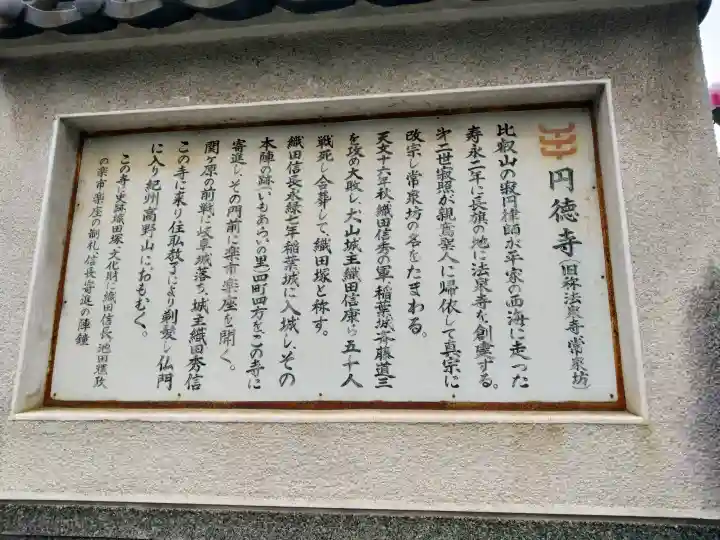 円徳寺(旧称法泉寺・常泉坊)
比叡山の寂円律師が平家の西海に走った
寿永二年に長旗の地に法泉寺を創建する。
才二世寂照が親鸞聖人に帰依して真宗に
改宗し常泉坊の名をたまわる。
天文十六年秋織田信秀の軍、稲葉城斉藤道三
を攻め大敗し、犬山城主織田信康ら五十人
戦死し合葬して、織田塚と称す。
織田信長永禄七年稲葉城に入城し、その
本陣の跡(いもあらいの里)四町四方をこの寺に
寄進し、その門前に楽市・楽座を開く。
関ヶ原の前戦に岐阜城落ち、城主織田秀信
この寺に来り住職教了により剃髪し仏門
に入り紀州高野山におもむく。
この寺に史跡織田塚、文化財に織田信長、池田輝政
の楽市・楽座の制札、信長寄進の陣鐘